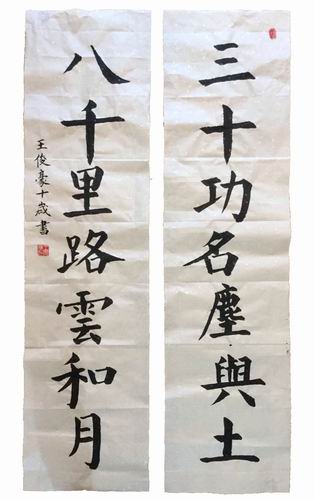 三十功名塵與土
八千里路雲和月
王俊豪十歲書